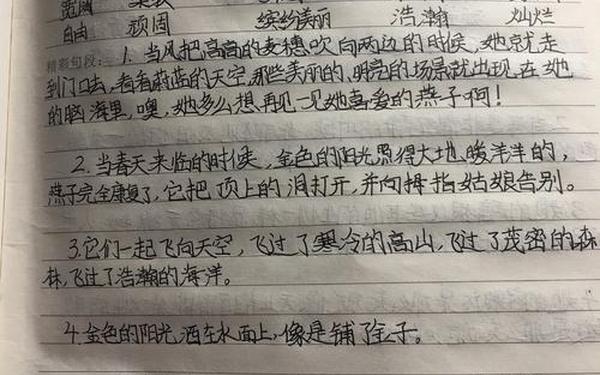 宽阔
自由 顽固 缤纷美丽 浩瀚 灿烂
精彩句段：1. 当风把高高的麦穗吹向两边的时候,她就走
到门口去,看看蔚蓝的天空,那些美丽的、明亮的场景就出现在她
的脑海里,噢,她多么想再见一见她喜爱的燕子啊!
2.当春天来临的时候,金色的阳光照得大地暖洋洋的,
燕子完全康复了,它把顶上的洞打开,并向拇指姑娘告别。
3.它们一起飞向天空,飞过了寒冷的高山,飞过了茂密的森
林,飞过了浩瀚的海洋。
4.金色的阳光洒在水面上,像是铺了金子。